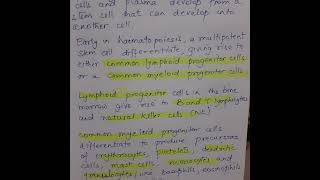 cells and plasma develop from a
stem cell that can develop into
another cell.
Early in haematopoiesis, a multipotent
stem cell differentiate, giving rise to
either common lymphoid progenitor cells
or a common myeloid progenitor cells
Lymphoid progenitor cells in the bone
marrow give rise to B and T lymphocytes
and natural killer cells (NK)
Common myeloid progenitor cells
differentiate to produce precursors
of erythrocytes, platelets, dendritic
cells, mast cells, and
granulocytes, like basophils, eosinophils